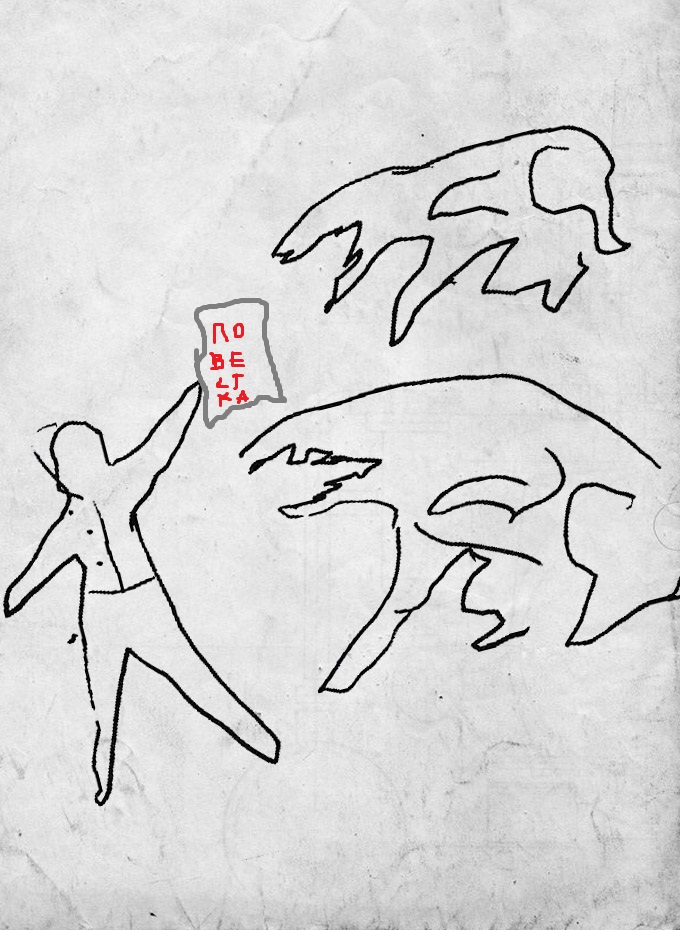 ПО
ВЕ
СТ
КА